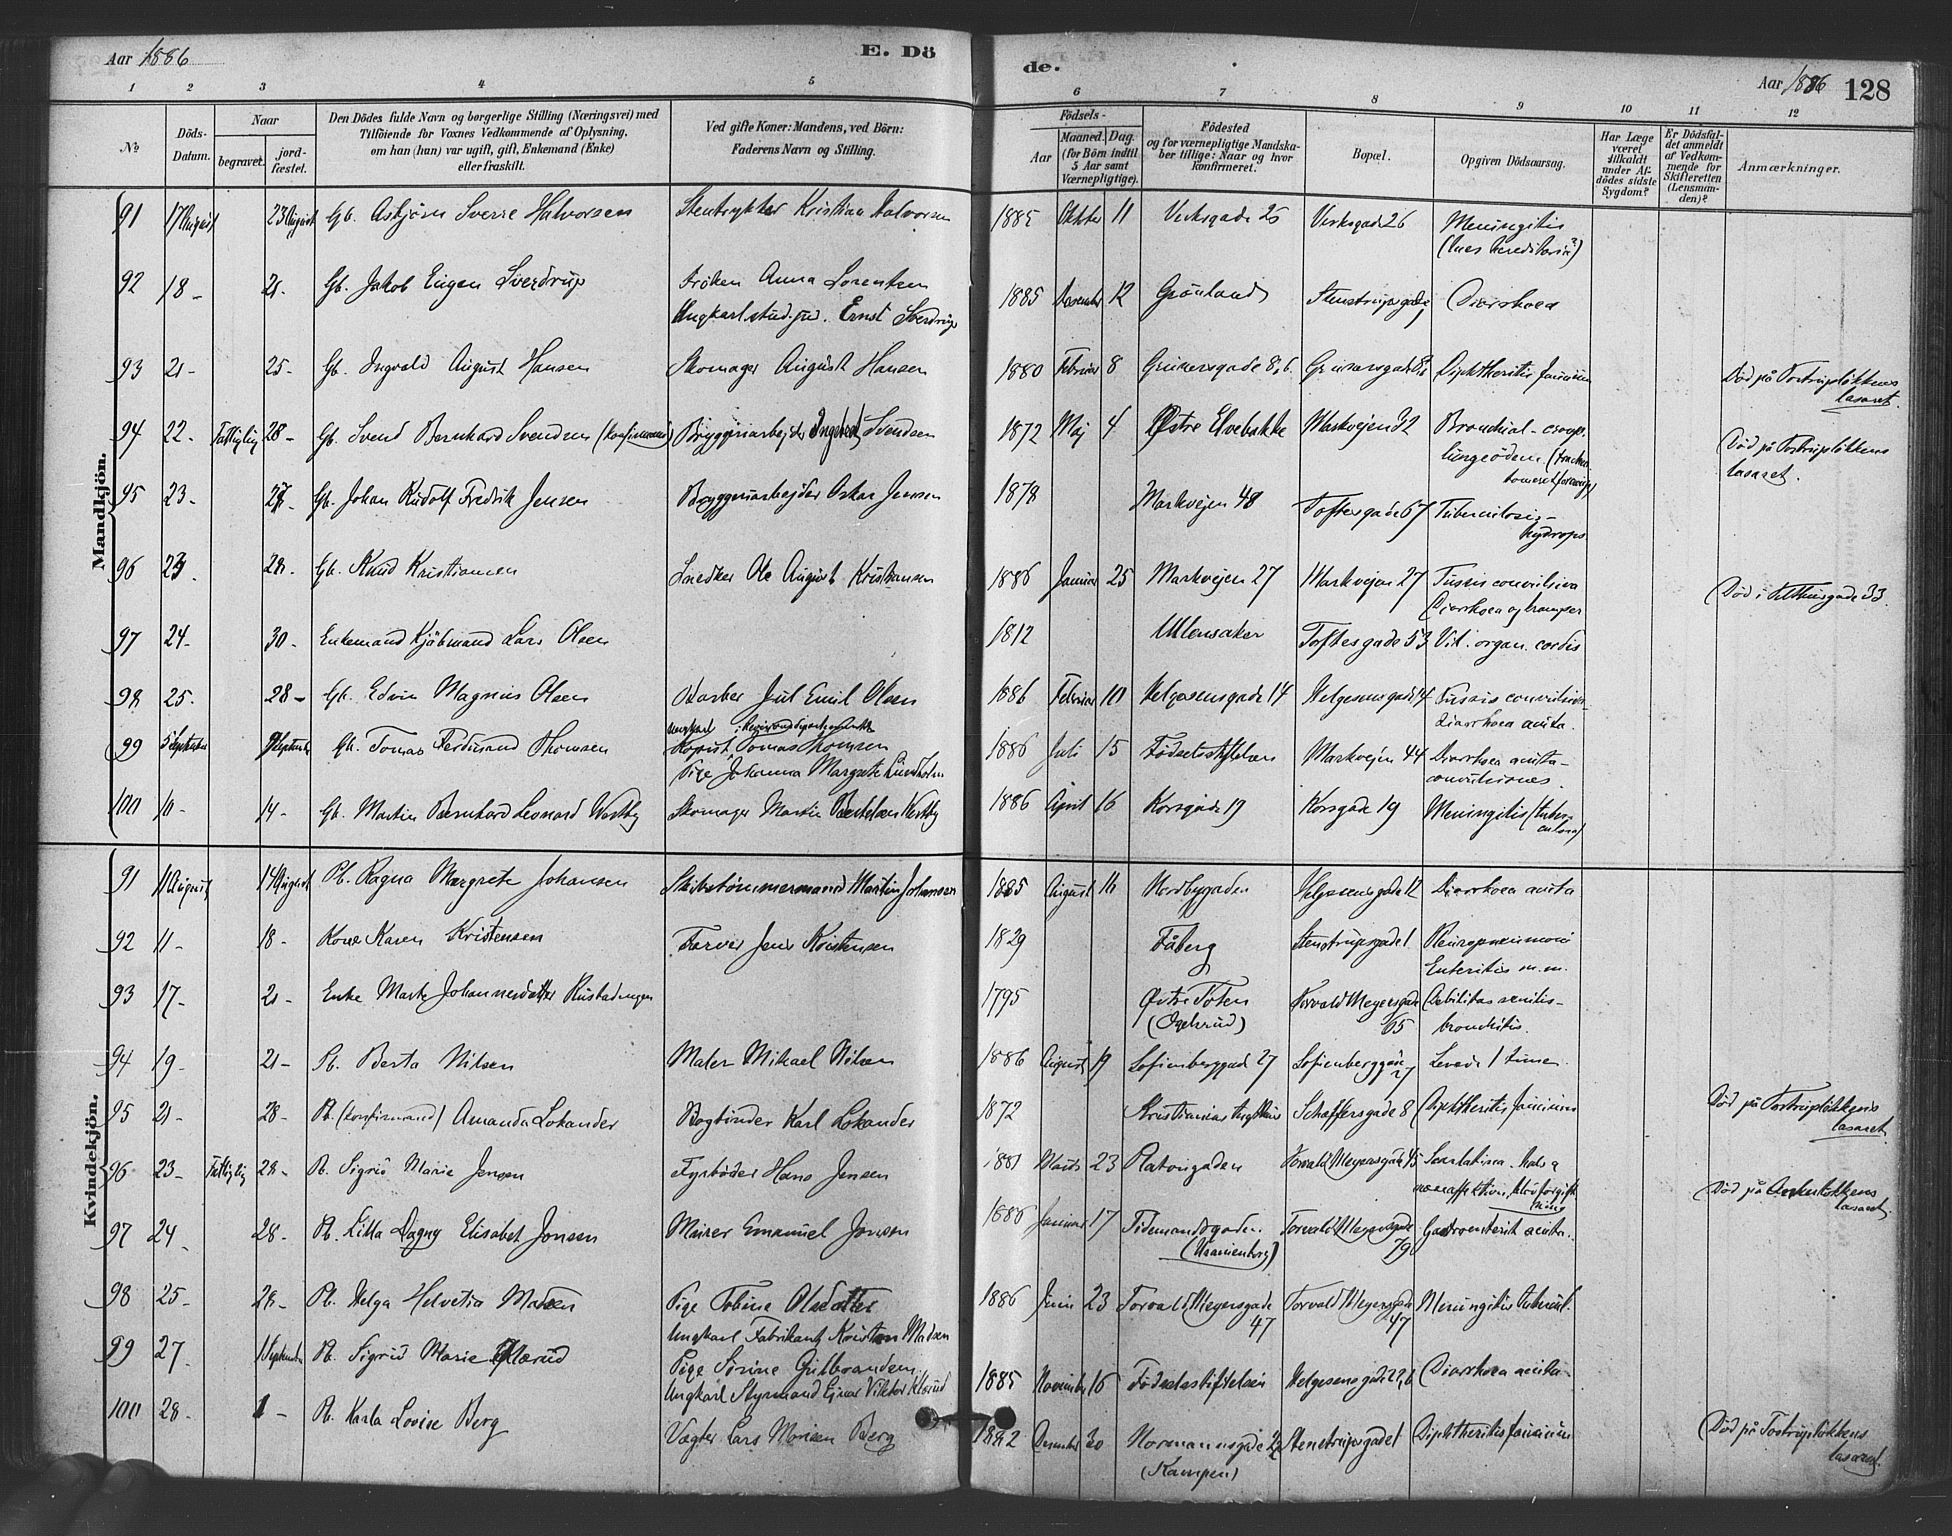 Aar 1886
E. Dö
de.
Aar 1886 128
1 2 3 4 5 6 7 8 9 10 11 12
No
Döds-
Datum.
Naar
begravet.
jord-
fæstet.
Den Dödes fulde Navn og borgerlige Stilling (Næringsvei) med
Tilföiende for Voxnes Vedkommende af Oplysning,
om han (hun) var ugift, gift, Enkemand (Enke)
eller fraskilt.
Ved gifte Koner: Mandens, ved Börn:
Faderens Navn og Stilling.
Födsels-
Aar
Maaned. Dag.
(for Börn indtil
5 Aar samt
Værnepligtige).
Födested
og for værnepligtige Mandska-
ber tillige: Naar og hvor
konfirmeret.
Bopæl.
Opgiven Dödsaarsag.
Har Læge
været
tilkaldt
under Af-
dödes sidste
Sygdom?
Er Dödsfal-
det anmeldt
af Vedkom-
mende for
Skifteretten
(Lensman-
den)?
Anmærkninger.
Mandkjön.
91 17 August 23 August Gb. Asbjörn Sverre Halvorsen Stentrykker Kristian Halvorsen 1885 Oktober 11 Verksgade 26 Verksgade 26 Meningitis
(lues hereditaria?)
92 18 - 21 - Gb. Jakob Eugen Sverdrup Fröken Anna Lorentzen 1885 December 12 Grönland Stenstrupsgade Diarrhoea
Ungkarl stud. jur. Ernst Sverdrup
93 21 - 25 - Gb. Ingvald August Hansen Skomager August Hansen 1880 Februar 8 Grünersgade 8, 6. Grünersgade Diphtheritis faucium Död på Tostrupløkkens
lasaret.
94 22. Fattiglig 28 - Gb. Svend Bernhard Svendsen (konfirmand) Bryggeriarbejder Svendsen 1872 Maj 4 Østre Elvebakke Markvejen 32 Bronchial-croup.
lungeödem Död på Tostrupløkkens
lasaret.
95 23 - 27 - Gb. Johan Rudolf Fredrik Jensen Bryggeriarbejder Oskar Jensen 1878 Markvejen 48 Toftesgade 67 Tuberculosis -
hydrops
96 23. 28 - Gb. Knud Kristiansen Snedker Ole August Kristiansen 1886 Januar 25 Markvejen 27 Markvejen 27 Tussis convulsiva
Diarrhoea og kramper Död i 33.
97 24 - 30 - Enkemand Kjöbmand Lars Olsen 1812 Ullensaker Toftesgade 53 Vit. organ. cordis
98 25. 28 - Gb. Edvin Magnus Olsen Barber Jul Emil Olsen 1886 Februar 10 Helgesensgade 14 Helgesensgade 14 Tussis convulsiva
Diarrhoea acuta.
99 5 September 9 September Gb. Tomas Ferdinand Thomsen Ungkarl
Kopist Tomas Thomsen 1886 Juli 15 Födselsstiftelsen Markvejen 44 Diarrhoea acuta -
Pige Johanna Margrete Lindholm convulsiones.
100 10 - 14 - Gb. Martin Bernhard Leonard Westby Skomager Martin Westby 1886 April 16 Korsgade 19 Korsgade 19 Meningitis (tuber-
culosa)
Kvindekjön.
91 11 August 14 August Pb. Ragna Margrete Johansen Skibstömmermand Martin Johansen 1885 August 16 Nordbygaden Helgesensgade 12 Diarrhoea acuta
92 11 - 18 - Kone Karen Kristensen Farver Jens Kristensen 1829 Fåberg Stenstrupsgade 1 Pleuropneumoni
Enteritis m.m.
93 17 - 21 - Enke Marte Johannesdatter Rustadengen 1795 Østre Toten Torvald Meyersgade 65 Debilitas senilis -
bronchitis.
94 19 - 21 - Pb. Berta Nilsen Maler Mikael Nilsen 1886 August 19 Sofienberggade 27 Sofienberggade 27 Levede 1 time
95 21 - 28 - Pb. (konfirmand) Amanda Lokander Bogbinder Karl Lokander 1872 Kristiania Schæffersgade 8 Diphtheritis faucium Död på Tostrupløkkens
lasaret.
96 23 - Fattiglig 28 - Pb. Sigrid Marie Jensen Fyrböder Hans Jensen 1881 Marts 23 Torvald Meyersgade 45 Scarlatina. Hals og
næseaffektion, blodforgift-
ning Död på
lasaret.
97 24 28 - Pb. Lilla Dagny Elisabet Jonsen Murer Emanuel Jonsen 1886 Januar 17 Tidemandsgaden
(Uranienborg) Torvald Meyersgade 79 Gastroenterit acuta.
98 25 - 28 - Pb. Helga Helvetia Madsen Pige Tobine Olsdatter 1886 Juni 23 Torvald Meyersgade 47 Torvald Meyersgade 47 Meningitis tubercul.
Ungkarl Fabrikant Kristen Madsen
99 27 - 1 September Pb. Sigrid Marie Pige Sörine Gulbrandsen 1885 November 16 Födselsstiftelsen Helgesensgade Diarrhoea acuta -
Ungkarl Styrmand Einar Viktor
100 28 - 1 - Pb. Karla Lovise Berg Vægter Lars Monsen Berg 1882 December 30 Normannsgade 22
(Kampen) Stenstrupsgade 1 Diphtheritis faucium Död på Tostrupløkkens
lasaret.